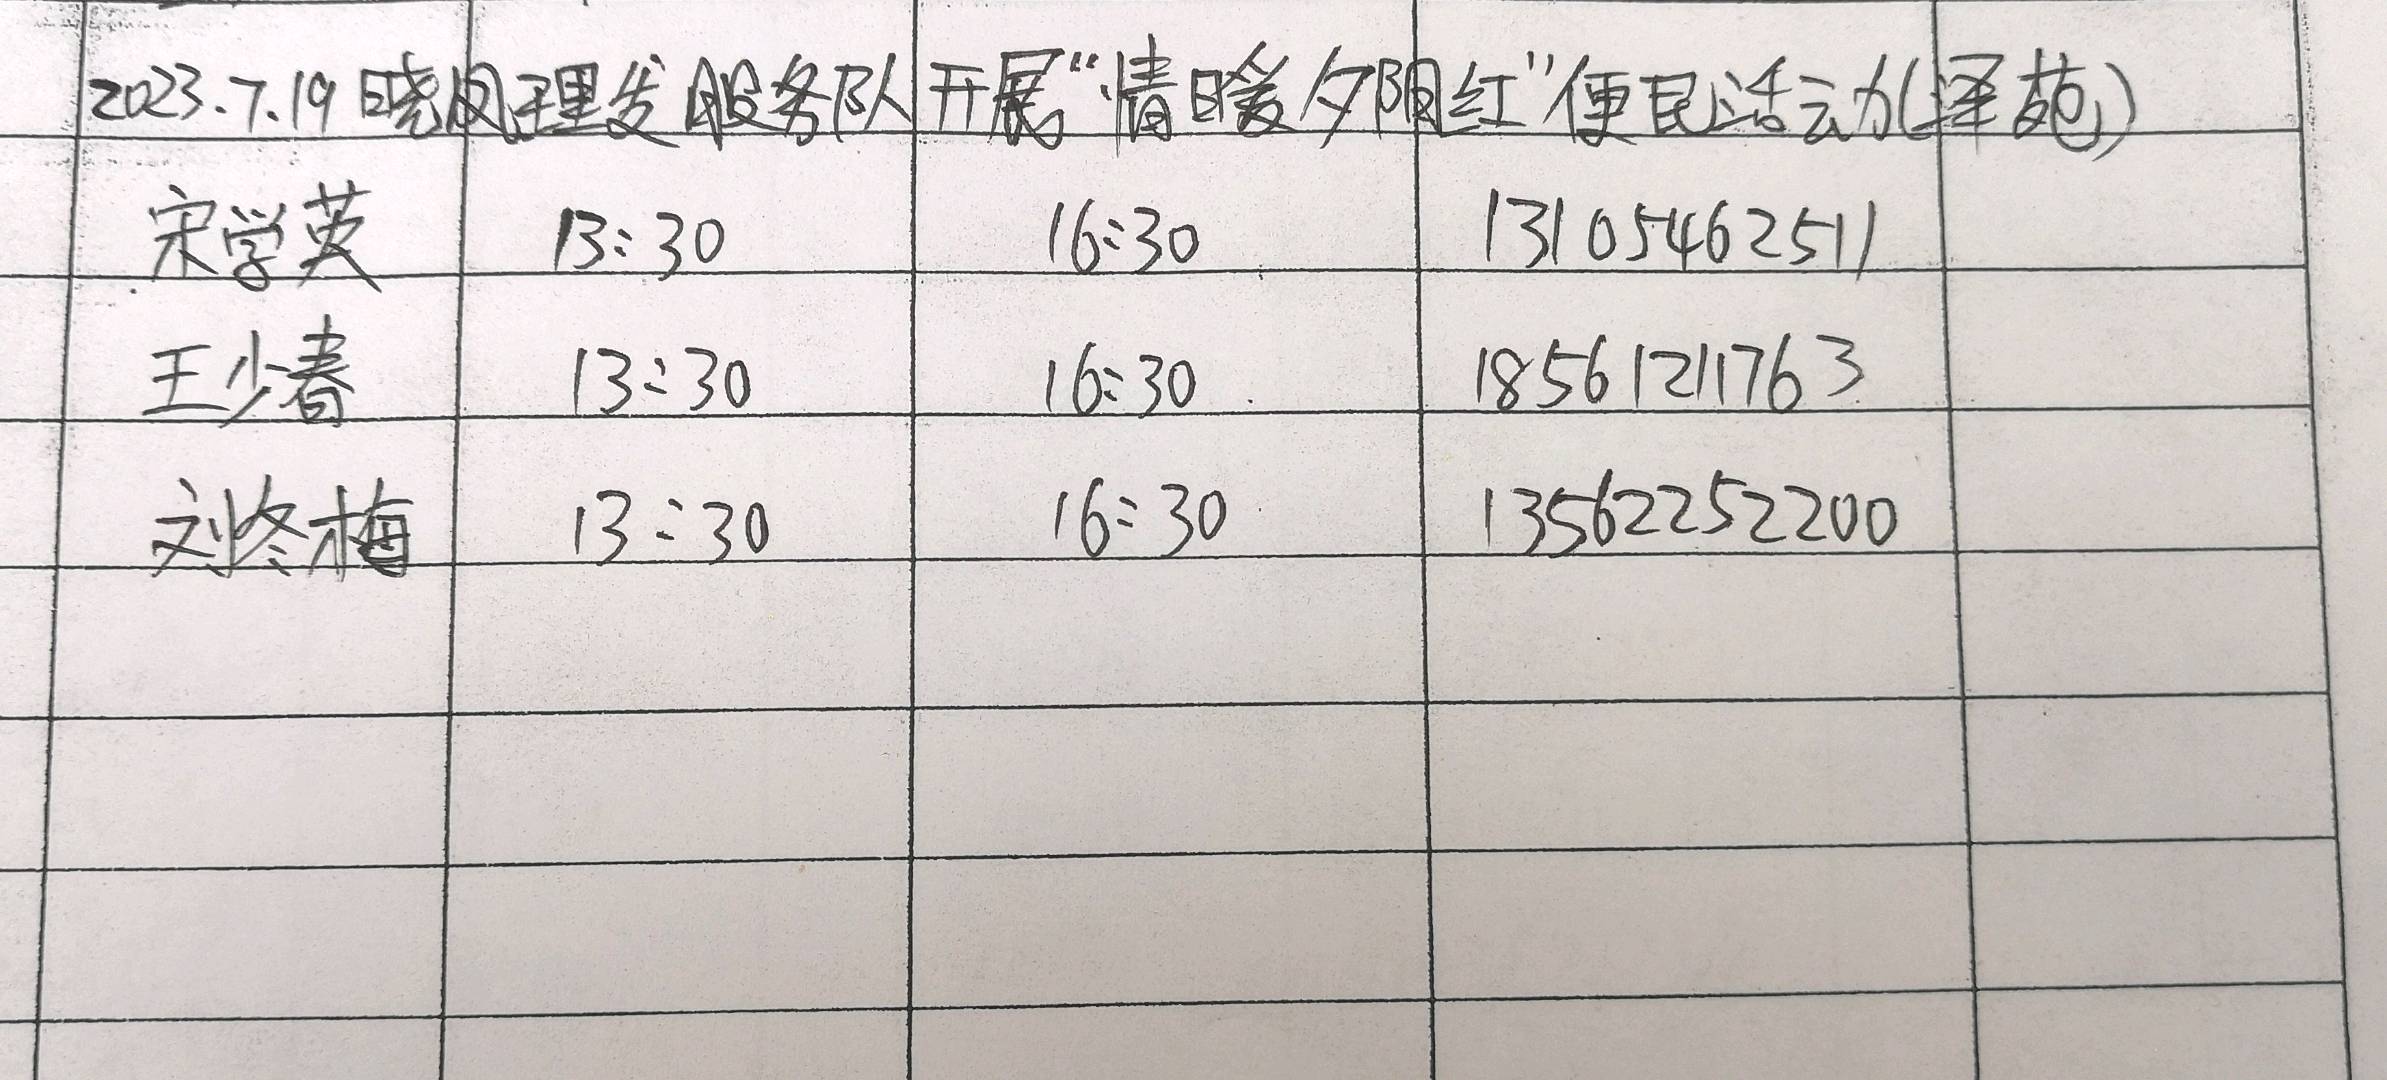 2023.7.19晓风理发服务队开展“情暖夕阳红”便民活动(泽苑)
宋学英 13:30 16:30 13105462511
王少春 13:30 16:30 18561211763
刘冬梅 13:30 16:30 13562252200